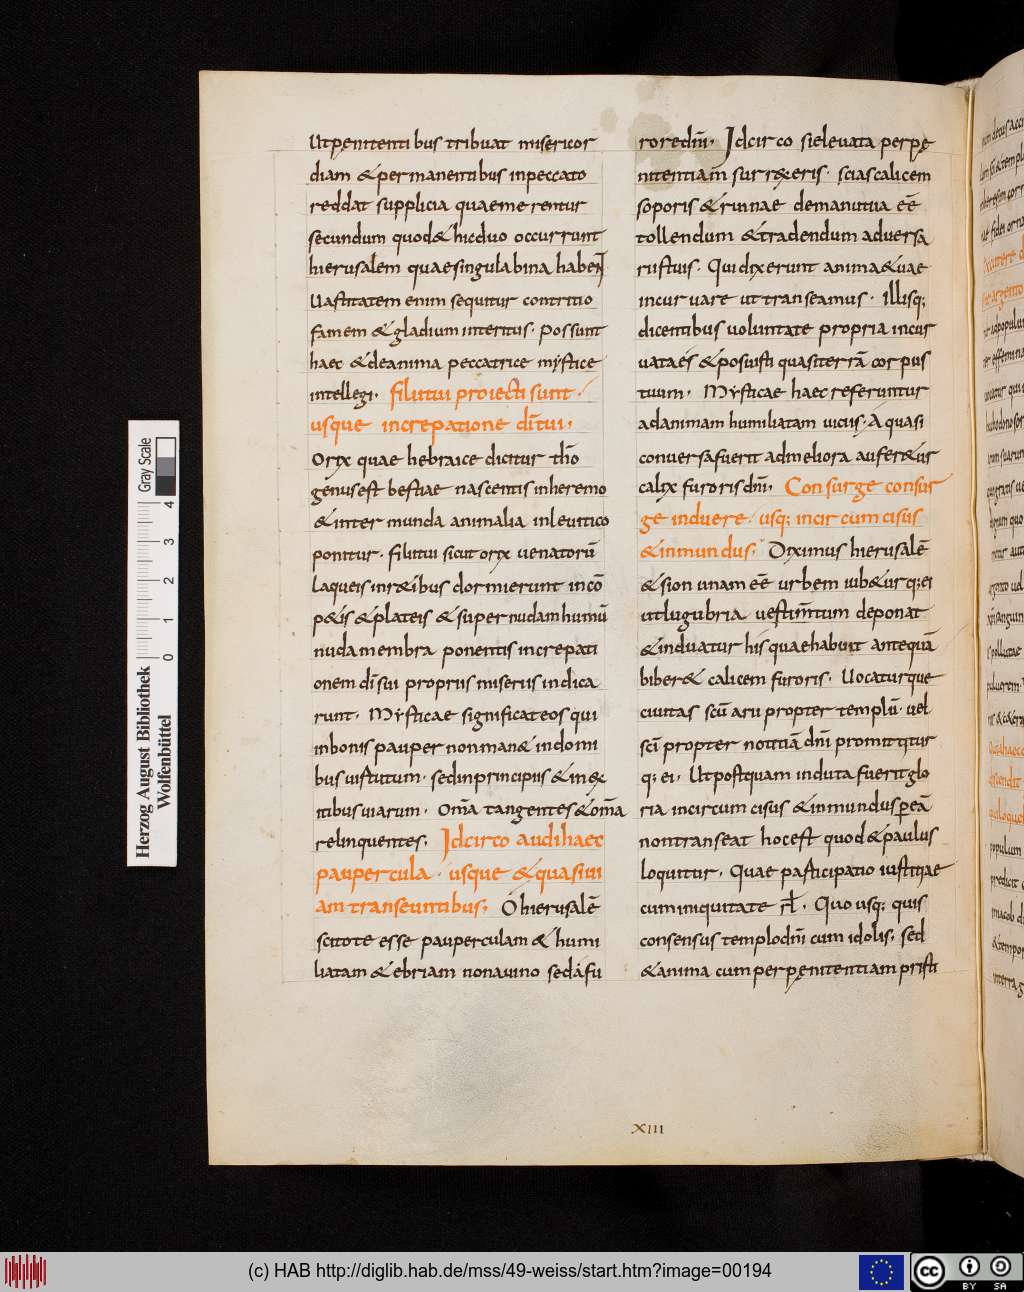 Utpenitentibus tribuat misericor
diam & permanentibus inpeccato
reddat supplicia quaemerentur
secundum quod & hicduo occurrunt
hierusalem quaesingula bina habent
Uastitatem enim sequitur contritio
famem & gladium interitus. possunt
haec & deanima peccatrice mystice
intellegi. filiitui proiecti sunt.
usque increpatione dītui.
Oryx quae hebraice dicitur thō
genusest bestiae nascentis inheremo
& inter munda animalia inleuitico
ponitur. filiitui sicut oryx uenatorū
laqueis inr&ibus dormierunt incō
p&is & plateis & super nudam humū
nuda membra ponentis increpati
onem dī sui propriis miseriis indica
runt. Mysticae significat eos qui
inbonis pauper nonman& indomi
bus uirtutum. sedinprincipiis & inex
itibus uiarum. Om̄a tangentes & om̄a
relinquentes. Idcirco audihaec
paupercula. usque & quasiui
am transeuntibus. O hierusalē
scitote esse pauperculam & humi
liatam & ebriam nonauino sedafu
roredn̄i. Idcirco sieleuata perpe
nitentiam surrexeris. scias calicem
soporis & ruinae demanutua eē
tollendum & tradendum aduersa
riis tuis. Qui dixerunt animae tuae
incuruare ut transeamus. Illisq;
dicentibus uoluntate propria incur
uataes & posuisti quasiterrā corpus
tuum. Mysticae haec referuntur
adanimam humiliatam uiciis. A quasi
conuersafuerit admeliora aufer&ur
calix furoris dn̄i. Consurge consur
ge induere. usq; incircumcisus
& inmundus. Diximus hierusalē
& sion unam eē urbem iub&urq; ei
utlugubria uestim̄tum deponat
& induatur his quaehabuit antequā
biber& calicem furoris. Uocaturque
ciuitas scūarii propter templū. uel
scī propter notitiā dn̄i promittitur
q; ei. Utpostquam induta fuerit glo
ria incircumcisus & inmundus p eā
nontranseat hocest quod & paulus
loquitur. Quae participatio iustitiae
cuminiquitate rł. Quo usq; quis
consensus templodn̄i cum idolis, sed
& anima cum perpenitentiam pristi
XIII
Herzog August Bibliothek
Wolfenbüttel
Gray Scale
0 1 2 3 4
(c) HAB http://diglib.hab.de/mss/49-weiss/start.htm?image=00194
cc BY SA